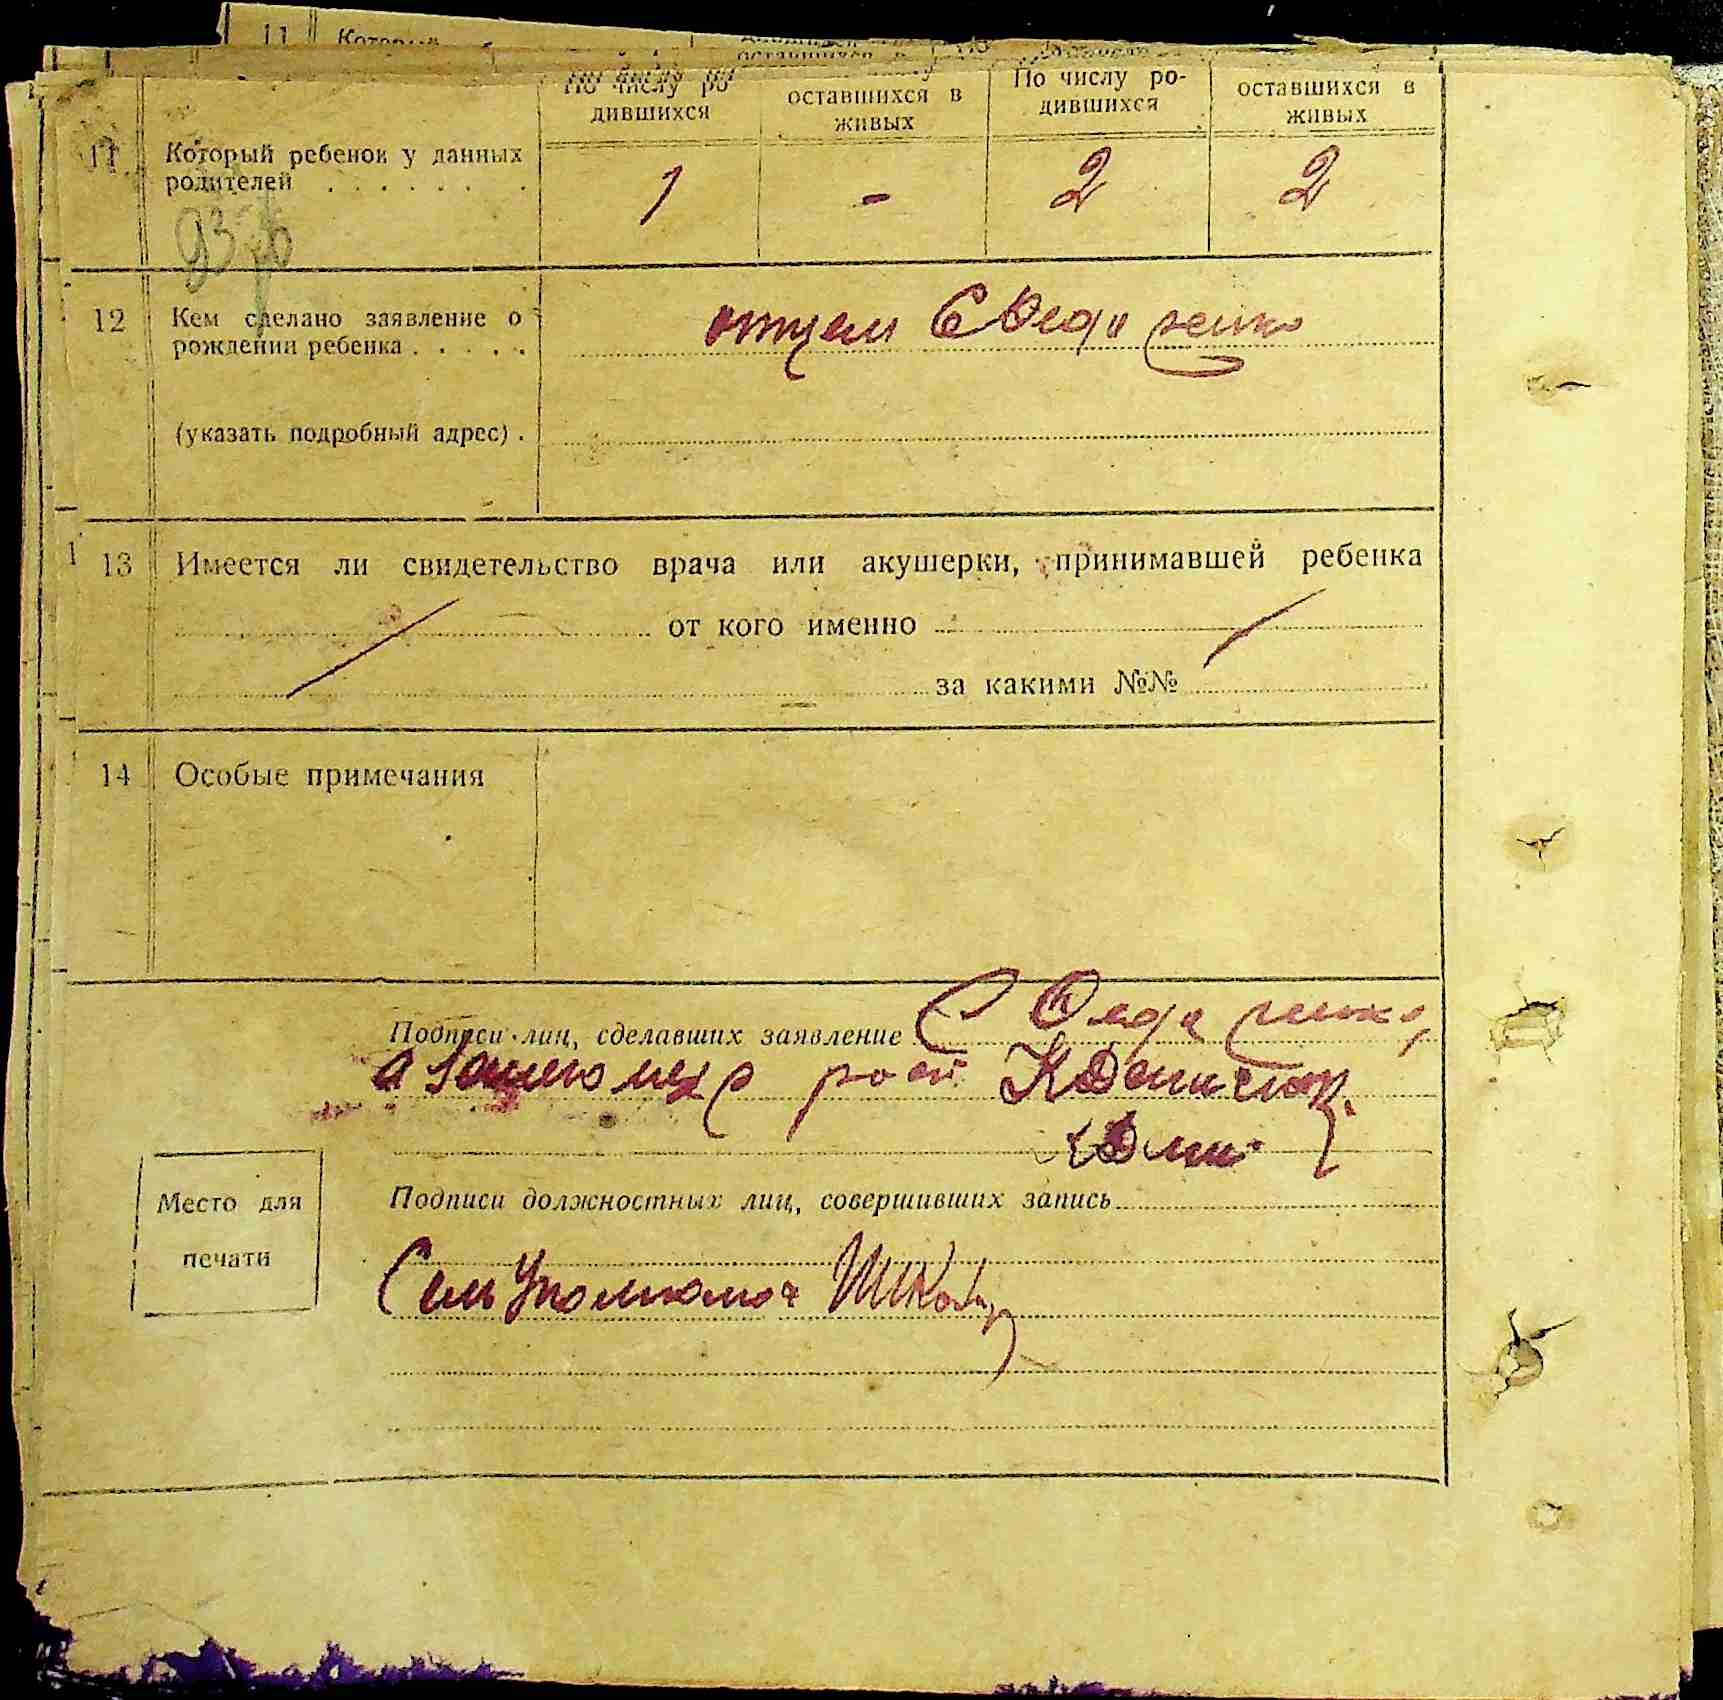 11 Который
По числу ро-
дившихся
оставшихся в
живых
По числу ро-
дившихся
оставшихся в
живых
11. Который ребенок у данных
родителей . . . . . . .
1 - 2 2
12 Кем сделано заявление о
рождении ребенка . . . . .
отцем С
(указать подробный адрес) .
13 Имеется ли свидетельство врача или акушерки, принимавшей ребенка
от кого именно
за какими №№
14 Особые примечания
Подписи лиц, сделавших заявление С
а за
Место для
печати
Подписи должностных лиц, совершивших запись
Сек